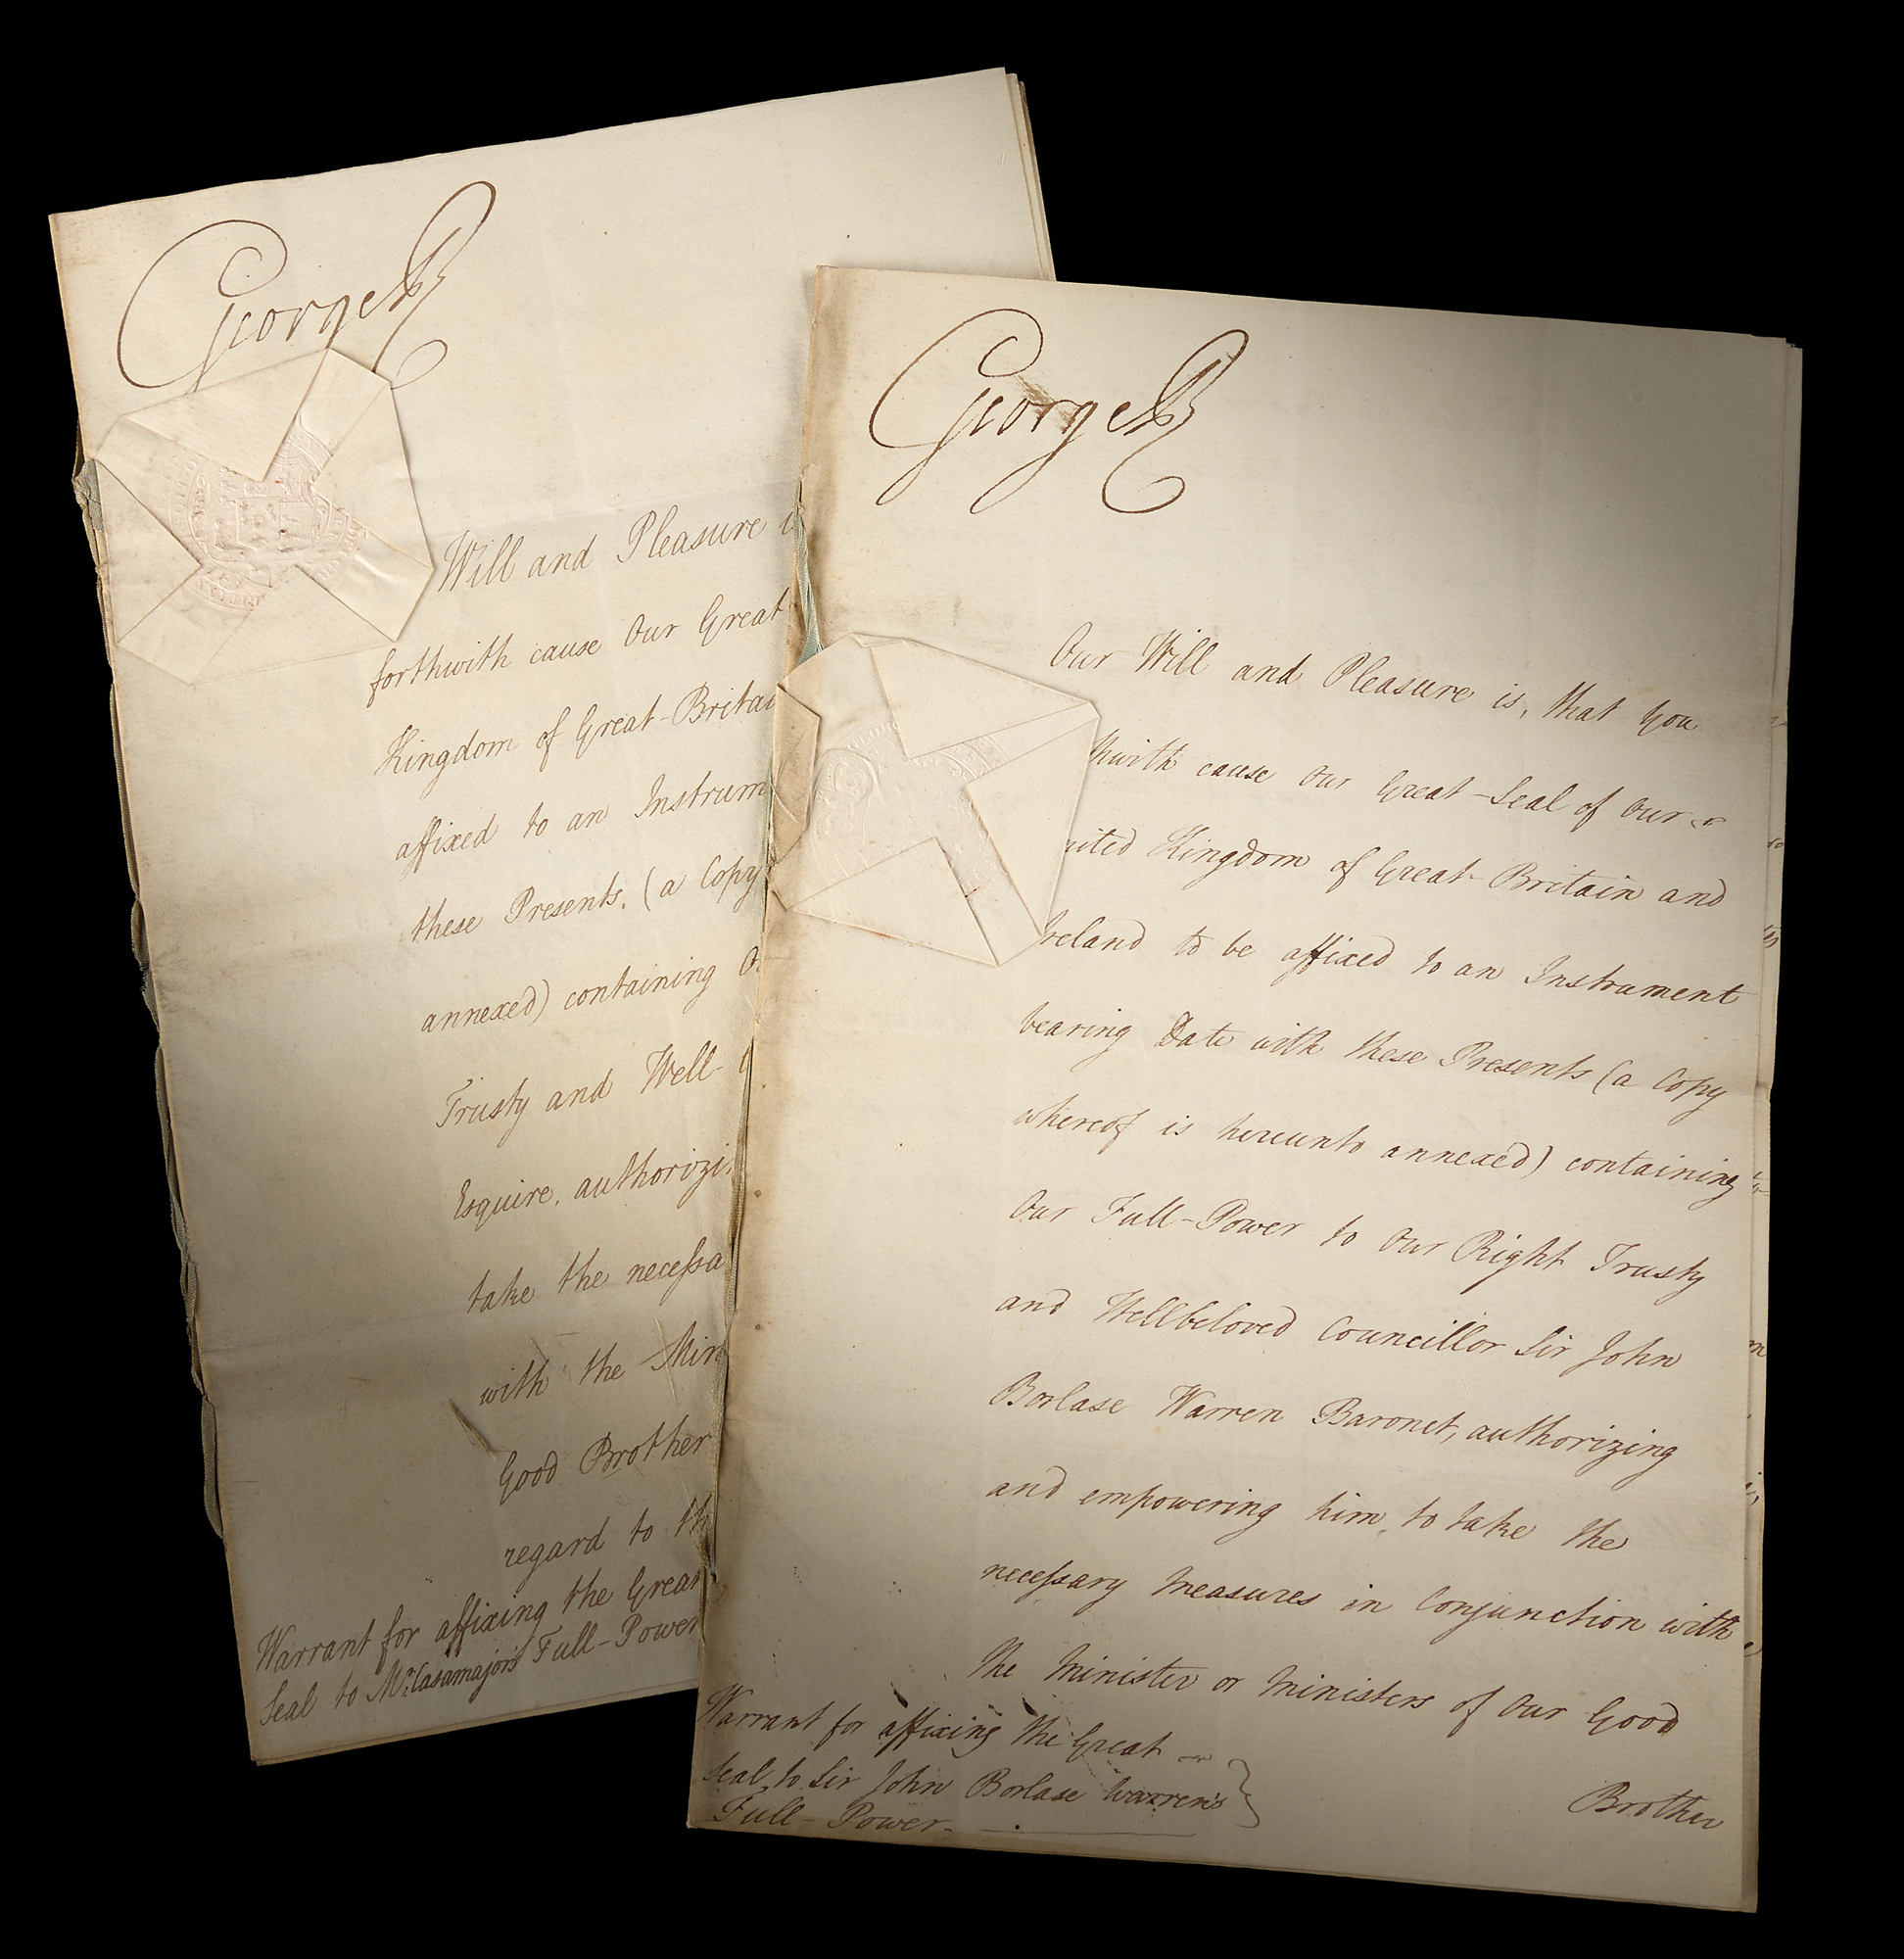 George R
Will and Pleasure
forthwith cause Our Great
Kingdom of Great-Britain
affixed to an Instrum
these Presents, (a Copy
annexed) containing
Trusty and Well-
Esquire, authorizi
take the necessa
with the Min
Good Brother
regard to th
Warrant for affixing the Great
Seal to Mr. Casamajor's Full-Power
George R
Our Will and Pleasure is, that You
thwith cause Our Great-Seal of Our
nited Kingdom of Great-Britain and
Ireland to be affixed to an Instrument
bearing Date with these Presents (a Copy
whereof is hereunto annexed) containing
Our Full-Power to Our Right Trusty
and Wellbeloved Councillor Sir John
Borlase Warren Baronet, authorizing
and empowering him, to take the
necessary Measures in Conjunction with
the Minister or Ministers of Our Good
Brother
Warrant for affixing the Great
Seal to Sir John Borlase Warren's
Full-Power.